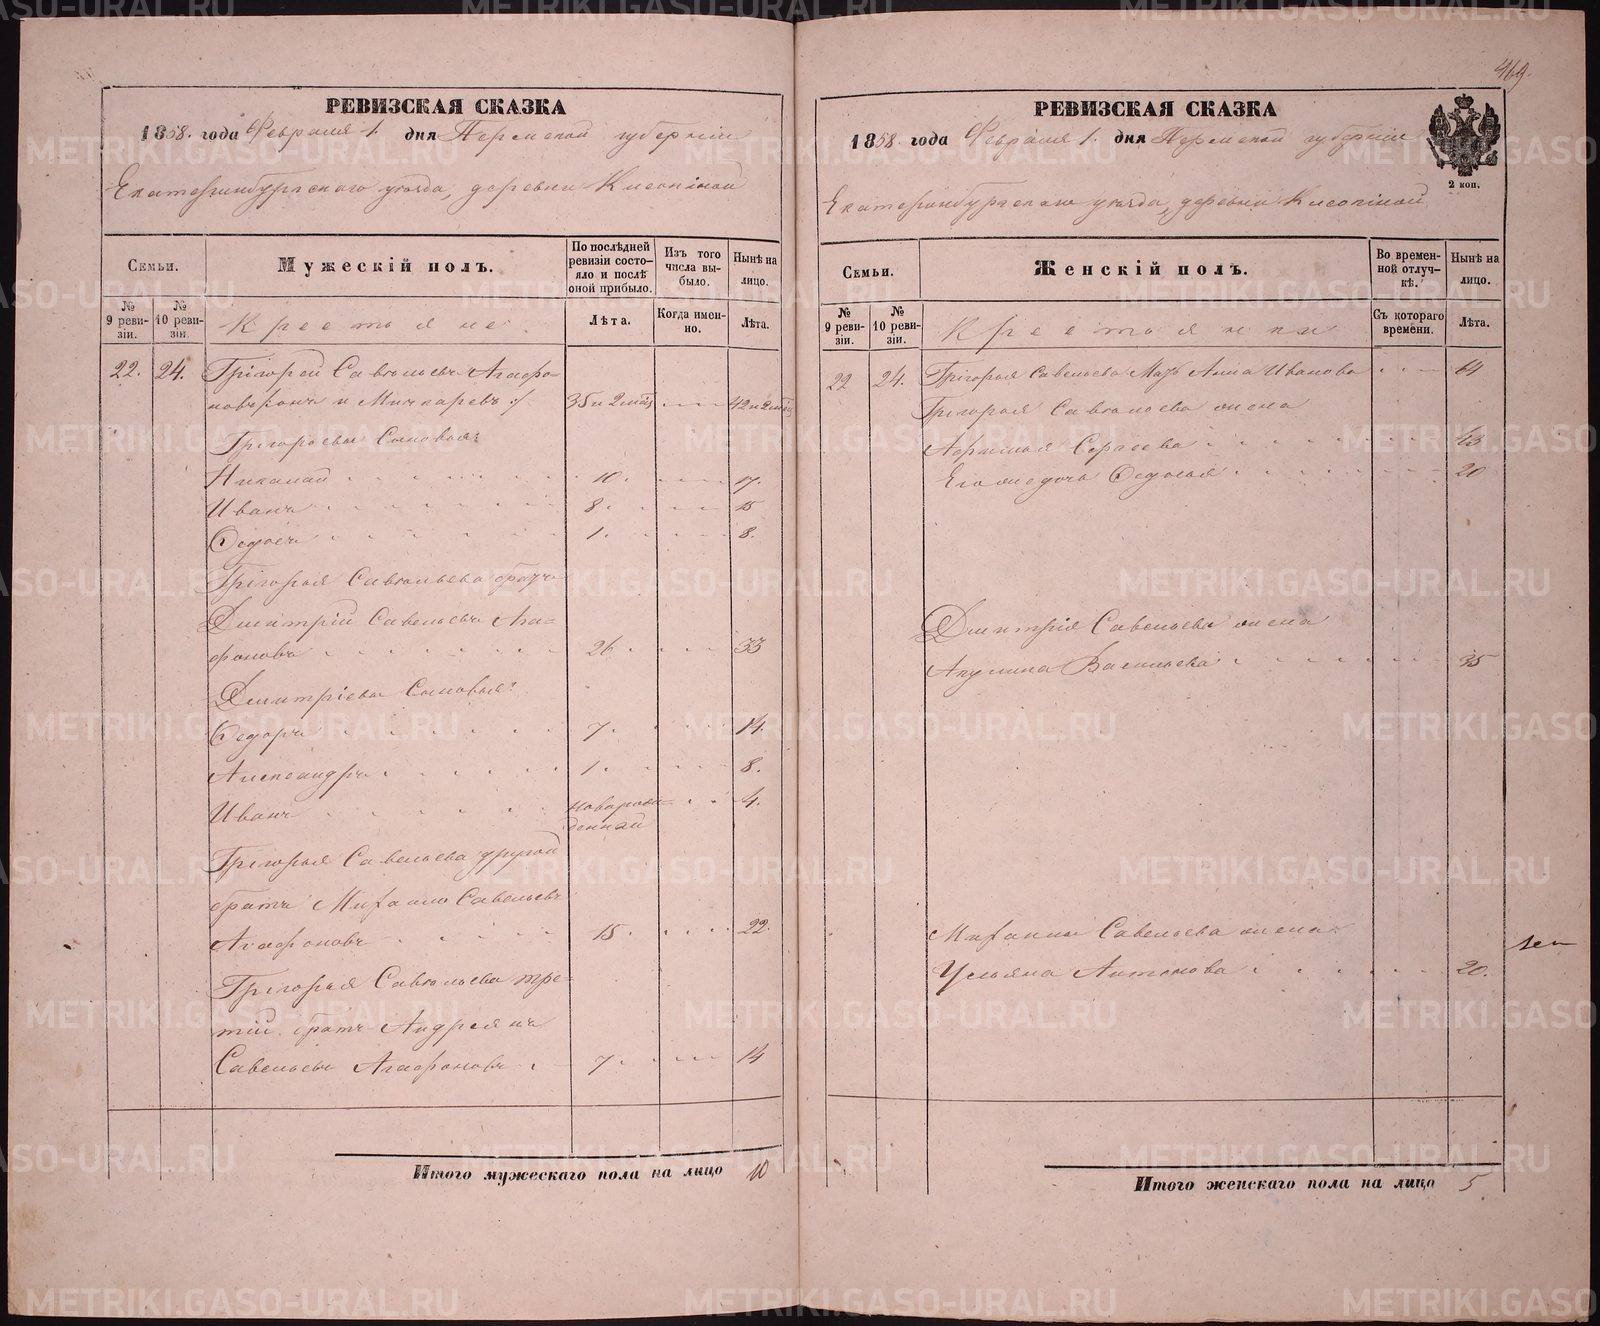 469.
РЕВИЗСКАЯ СКАЗКА
1858. года Февраля 1. дня Пермской губернiи
Екатеринбургскаго уѣзда, деревни
Семьи.
Мужескiй полъ.
По послѣдней ревизiи состояло и послѣ оной прибыло.
Изъ того числа выбыло.
Нынѣ на лицо.
№ 9 ревизiи.
№ 10 ревизiи.
Крестьяне
Лѣта.
Когда именно.
Лѣта.
22. 24. Григорей Савельевъ Агафо-
новъ 35 и 2 42 и 2
Григорьевы Сыновья:
Николай 10. 17.
Иванъ 8. 15
1. 8.
Григорья Савельева братъ
Дмитрiй Савельевъ Ага-
фоновъ 26 33
Дмитрiевы Сыновья:
Федоръ 7. 14.
Александръ 1. 8.
Иванъ новорож-
денный 4.
Григорья Савельева другой
братъ Савельевъ
Агафоновъ 15. 22.
Григорья Савельева тре-
тiй братъ Андреянъ
Савельевъ Агафоновъ 7. 14
Итого мужескаго пола на лицо 10
РЕВИЗСКАЯ СКАЗКА
1858. года Февраля 1. дня Пермской губернiи
Екатеринбургскаго уѣзда, деревни
2 коп.
Семьи.
Женскiй полъ.
Во временной отлучкѣ.
Нынѣ на лицо.
№ 9 ревизiи.
№ 10 ревизiи.
Крестьянки
Съ котораго времени.
Лѣта.
22 24. Григорья Савельева Мать Анна Иванова 64
Григорья Савельева жена
Сергеева 43
Его дочь 20
Дмитрiя Савельева жена
Акулина Васильева 35
Савельева жена
Ульяна Антонова 20.
Итого женскаго пола на лицо 5.
METRIKI.GASO-URAL.RU